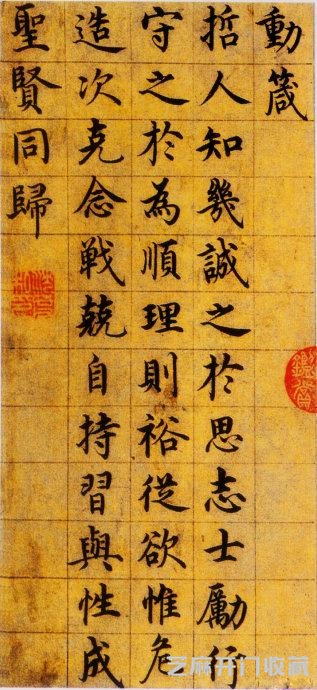 動箴
哲人知幾誠之於思志士勵行
守之於為順理則裕從欲惟危
造次克念戰兢自持習與性成
聖賢同歸
鑑賞
芝麻开门收藏